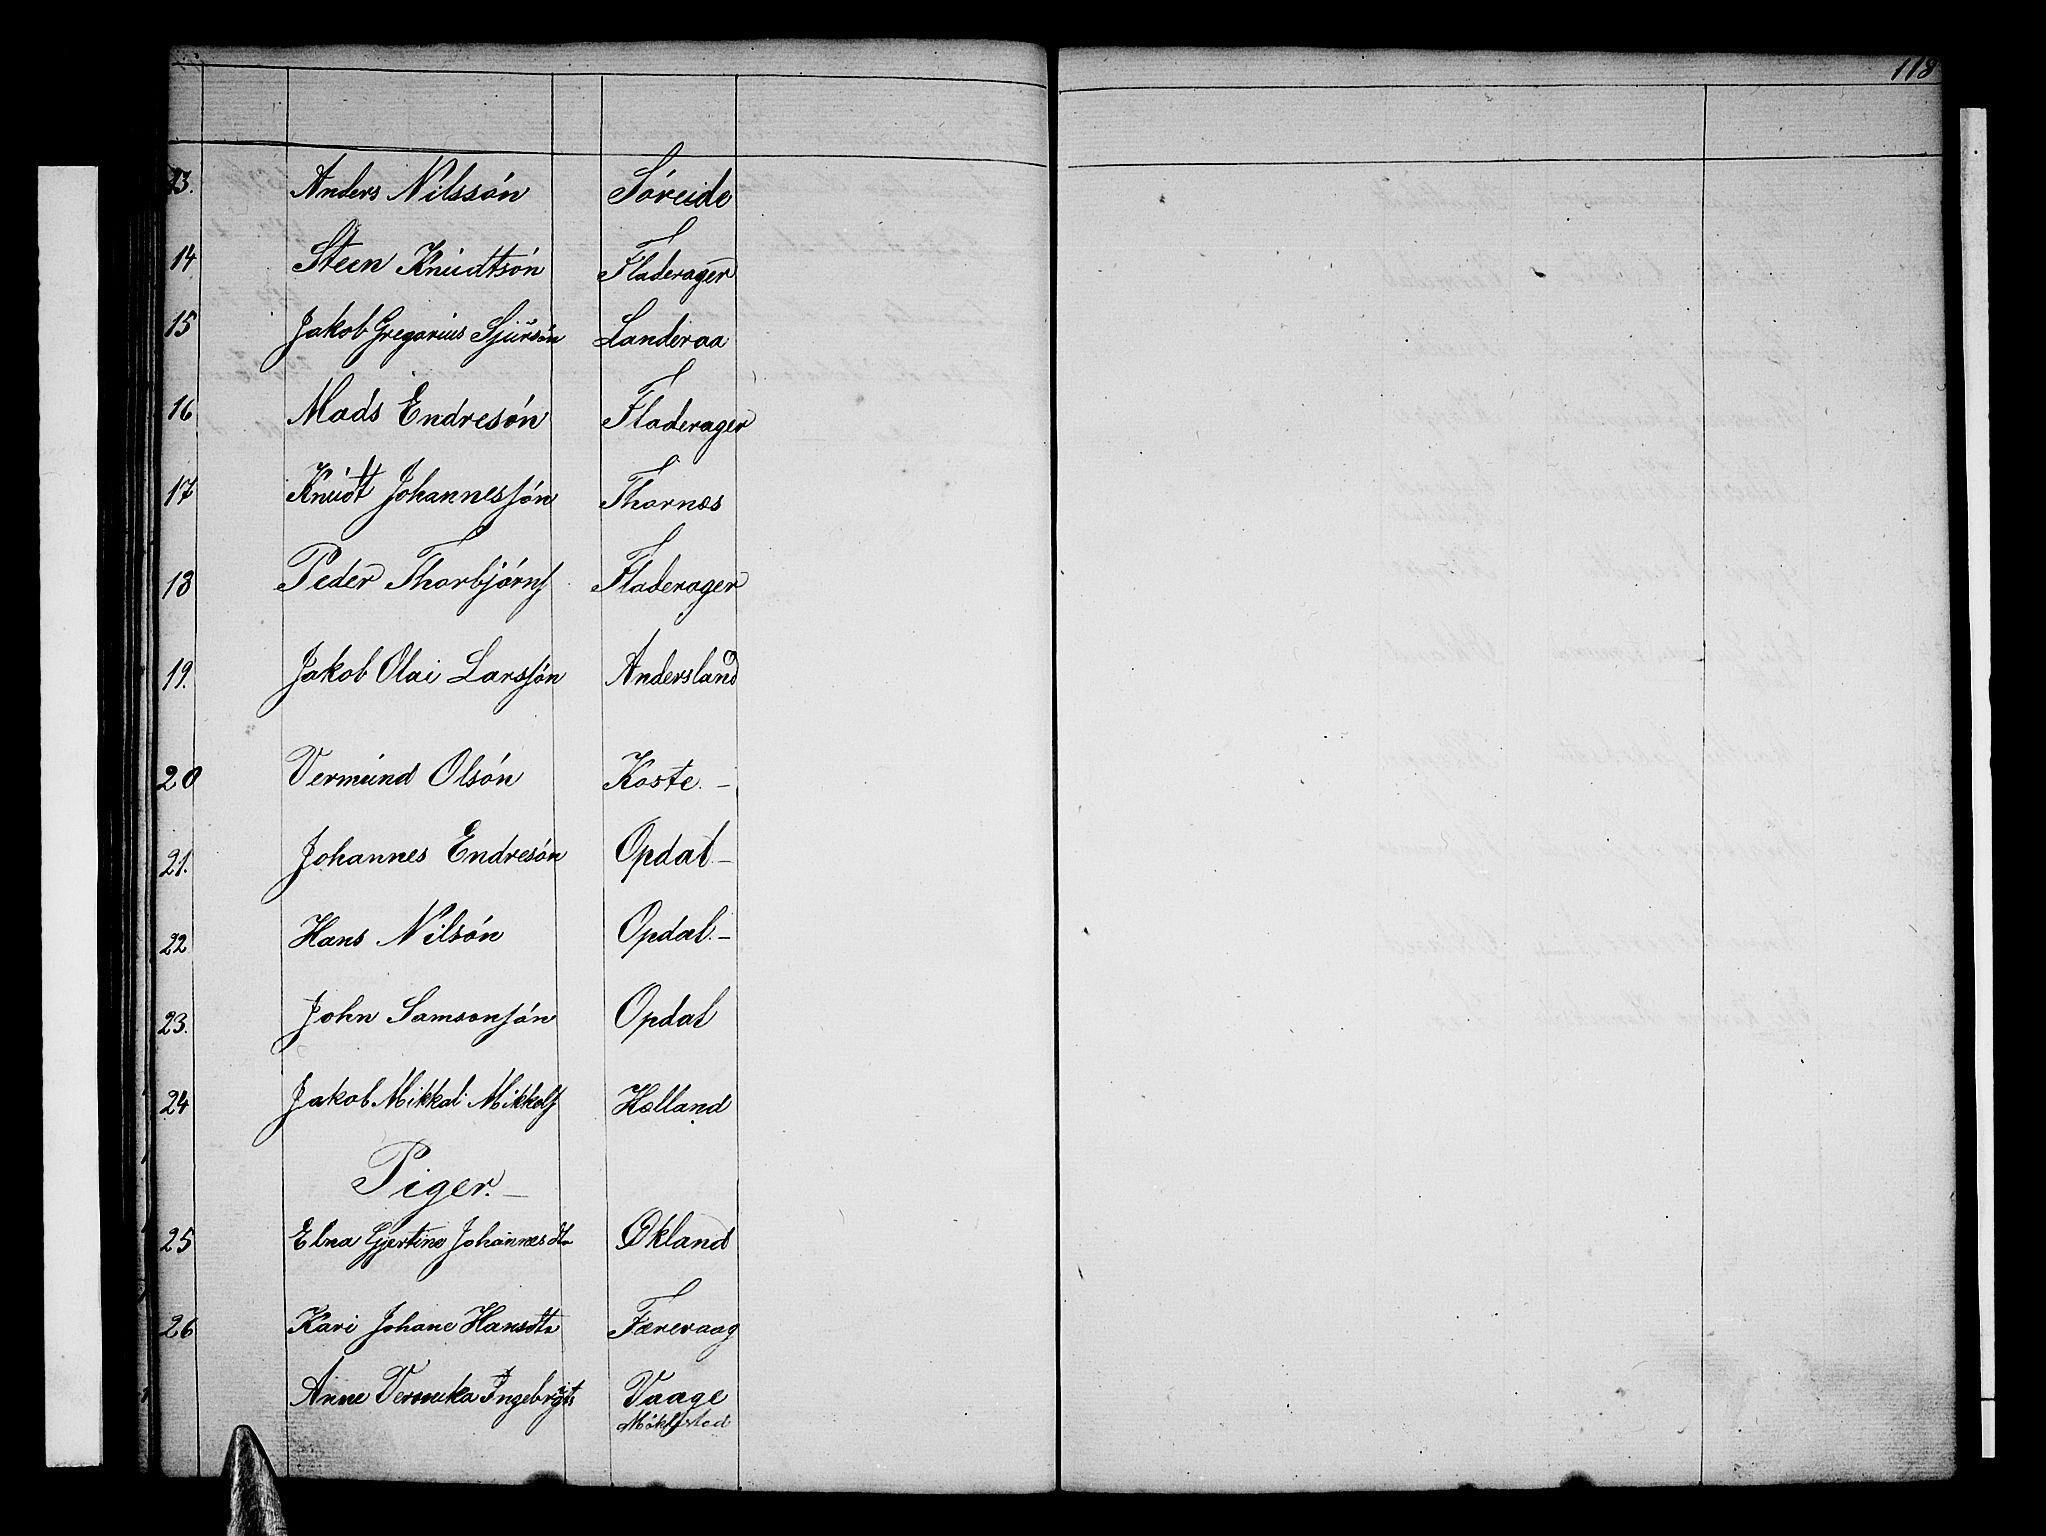 118
13. Anders Nilssón Sóreide
14 Steen Knúdtsón Fladerager
15 Jakob Gregorius Sjúrsón Landeraa
16 Mads Endresón Fladerager
17 Knúdt Johannessón Thornæs
18 Peder Thorbjórns Fladerager
19. Jakob Olai Larssón Andersland
20 Vermúnd Olsón Koste. –
21. Johannes Endresón Opdal –
22 Hans Nilsón Opdal. –
23. John Samsonsón Opdal
24 Jakob Mikkal Mikkels Hælland
Piger. –
25 Elna Gjertine Johannesdtr Økland
26 Kari Johane Hansdtr Færevaag
Anne Veronika Ingebrigts Vaage
Möklestad